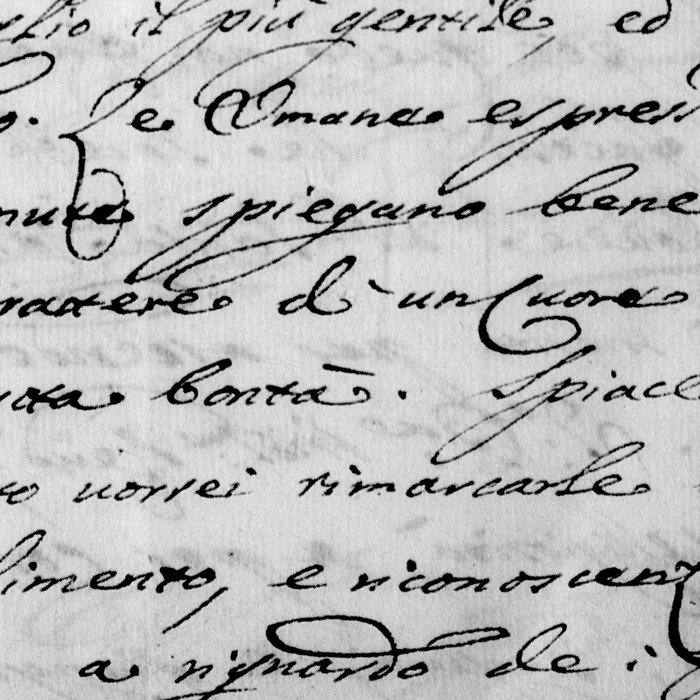 glio il più gentile, ed
o. Le Umane espress
nute spiegano bene
rattere d'un Cuore
utta bontà. Spiace
to vorrei rimarcarle
limento, e riconoscenz
a riguardo de i